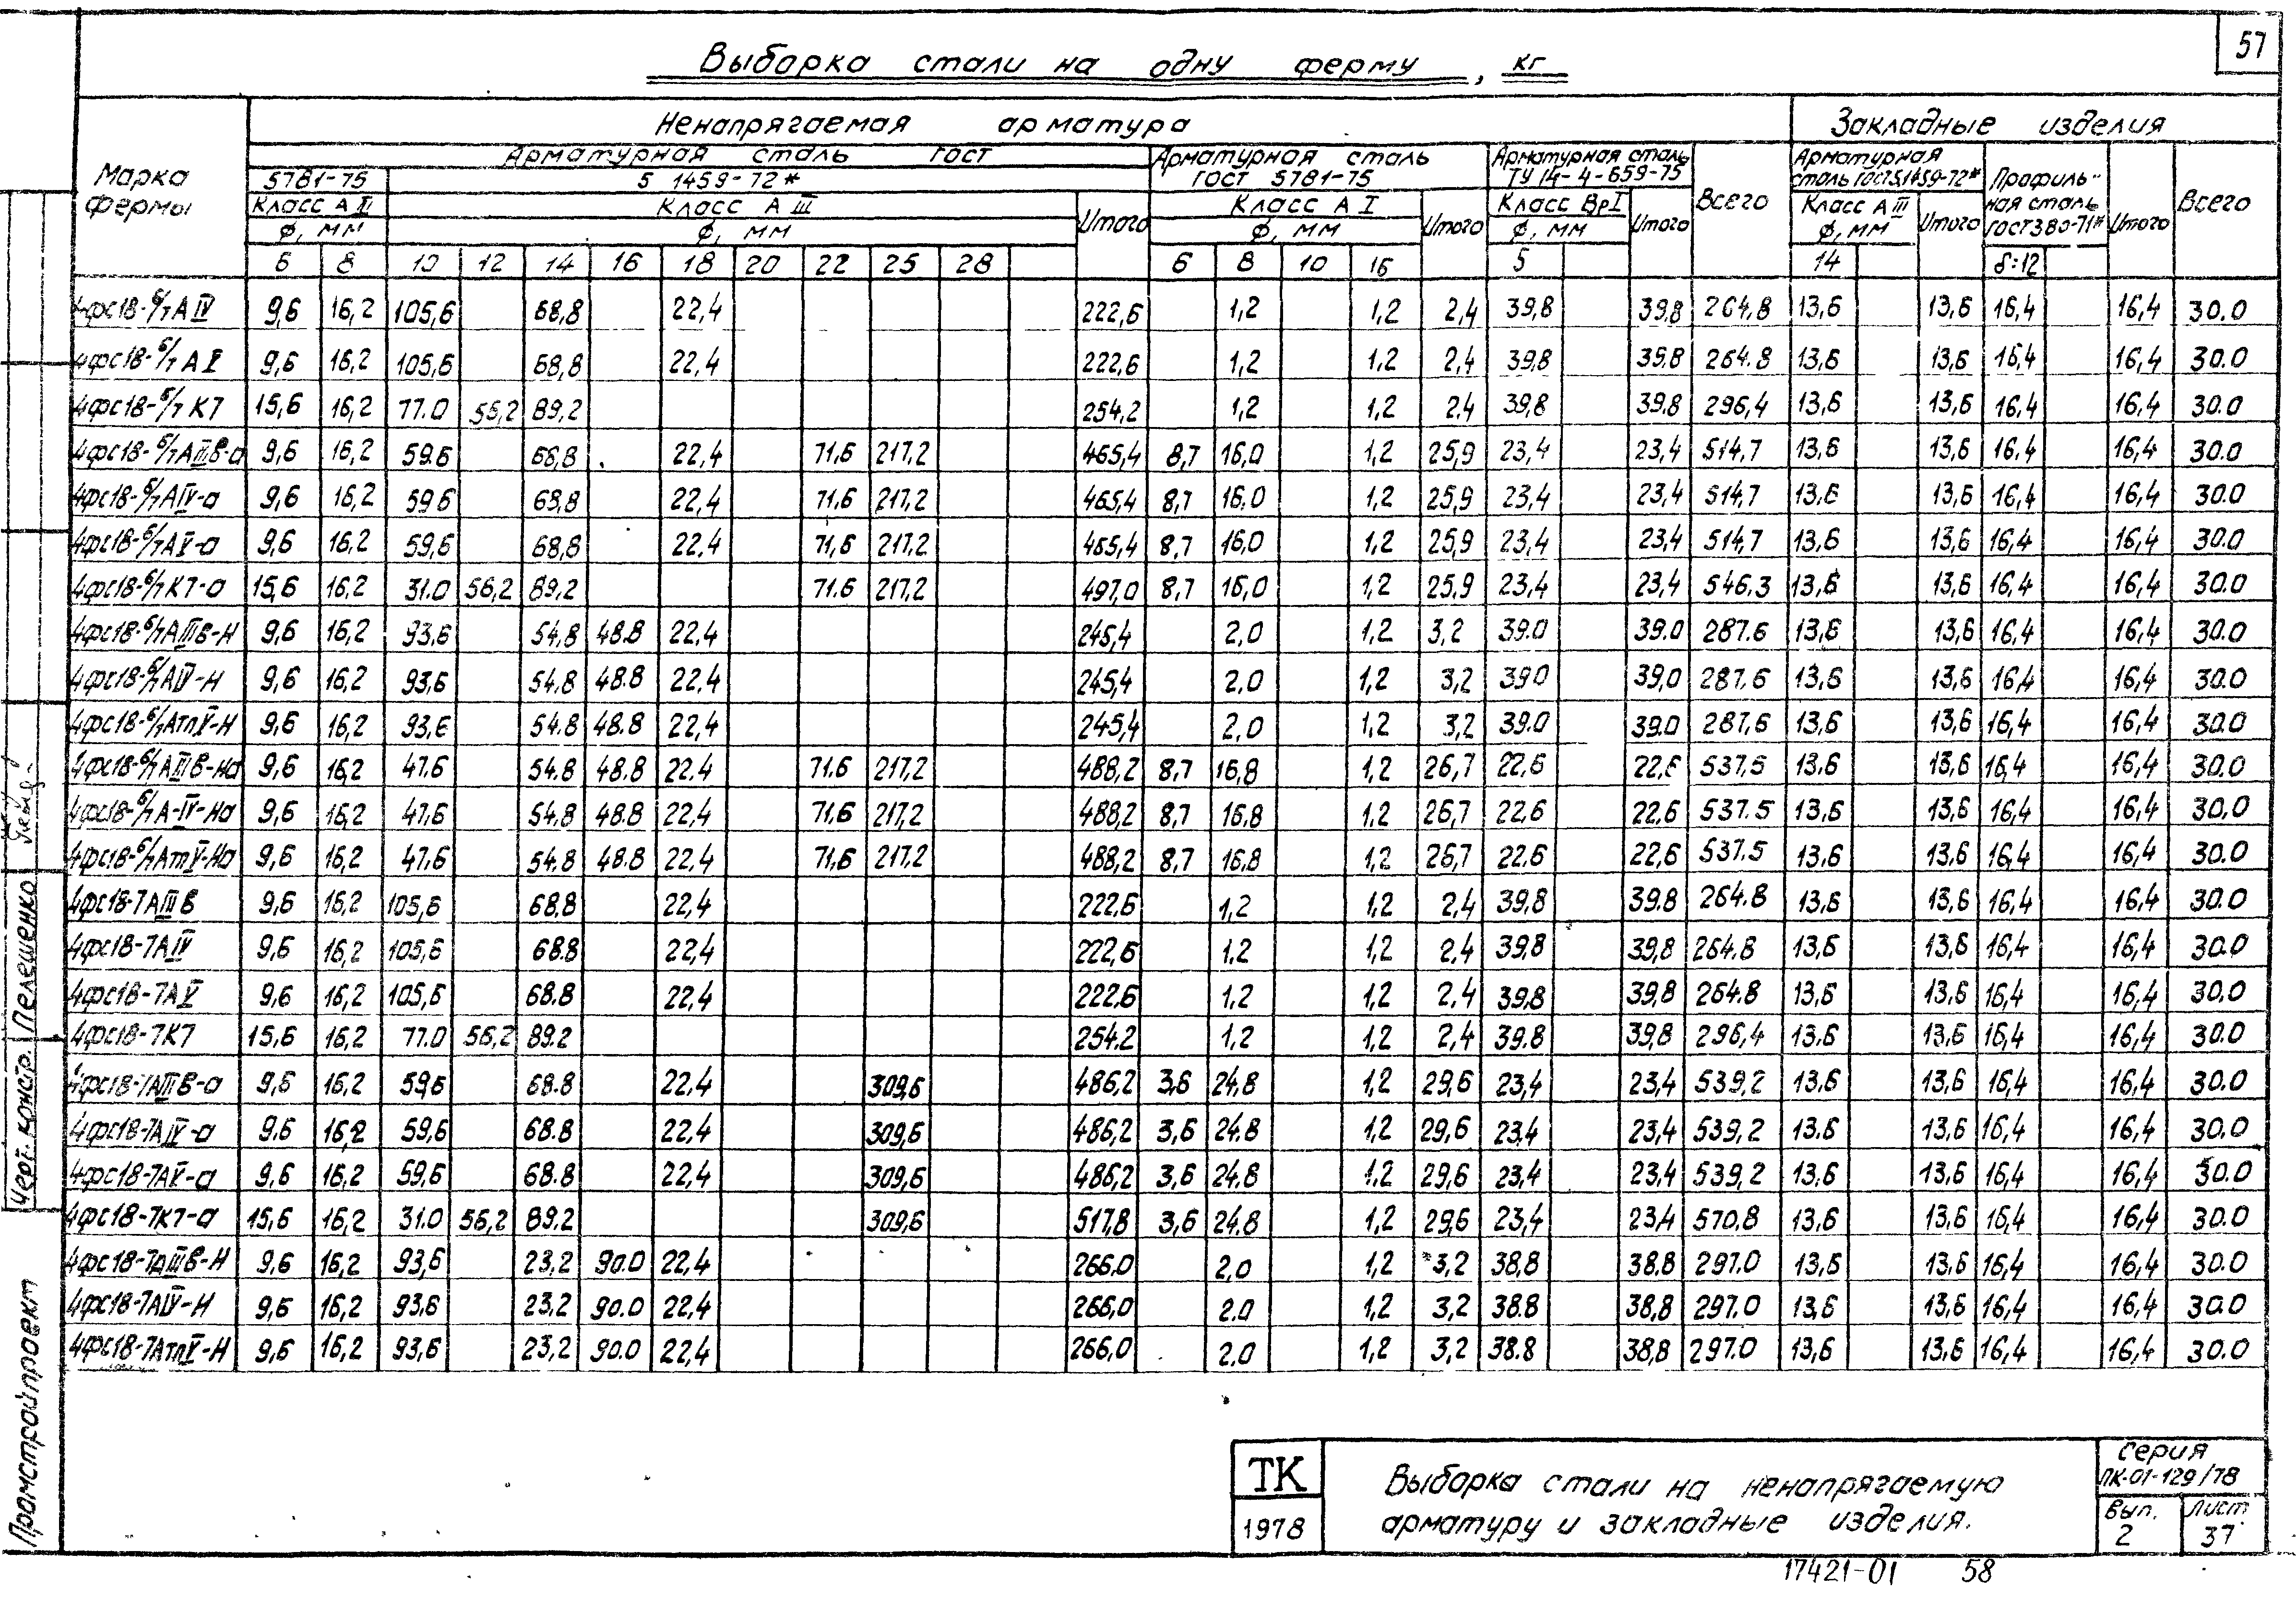 57
Выборка стали на одну ферму, кг
Марка фермы
Ненапрягаемая арматура
Закладные изделия
Арматурная сталь гост
Арматурная сталь гост 5781-75
Арматурная сталь ТУ 14-4-659-75
Всего
Арматурная сталь гост 5.1459-72*
Профиль-ная сталь гост 380-71*
Итого
Всего
5781-75
5 1459-72*
Класс А II
Класс А III
Итого
Класс А I
Итого
Класс Вр I
Итого
Класс А III
Итого
ф, мм
ф, мм
ф, мм
ф, мм
ф, мм
6 8 10 12 14 16 18 20 22 25 28 6 8 10 16 5 14 δ=12
4фс18-6/7АIV 9,6 16,2 105,6 68,8 22,4 222,6 1,2 1,2 2,4 39,8 39,8 264,8 13,6 13,6 16,4 16,4 30.0
4фс18-6/7АV 9,6 16,2 105,6 68,8 22,4 222,6 1,2 1,2 2,4 39,8 39,8 264.8 13,6 13,6 16,4 16,4 30.0
4фс18-6/7К7 15,6 16,2 77.0 56,2 89,2 254,2 1,2 1,2 2,4 39,8 39,8 296,4 13,6 13,6 16,4 16,4 30.0
4фс18-6/7АIIIв-а 9,6 16,2 59.6 68,8 22,4 71,6 217,2 465,4 8,7 16,0 1,2 25,9 23,4 23,4 514,7 13,6 13,6 16,4 16,4 30.0
4фс18-6/7АIV-а 9,6 16,2 59,6 68,8 22,4 71,6 217,2 465,4 8,7 16,0 1,2 25,9 23,4 23,4 514,7 13,6 13,6 16,4 16,4 30.0
4фс18-6/7АV-а 9,6 16,2 59,6 68,8 22,4 71,6 217,2 465,4 8,7 16,0 1,2 25,9 23,4 23,4 514,7 13,6 13,6 16,4 16,4 30.0
4фс18-6/7К7-а 15,6 16,2 31.0 56,2 89,2 71.6 217,2 497,0 8,7 16,0 1,2 25,9 23,4 23,4 546,3 13,6 13,6 16,4 16,4 30.0
4фс18-6/7АIIIв-Н 9,6 16,2 93,6 54,8 48.8 22,4 245,4 2,0 1,2 3,2 39.0 39.0 287.6 13,6 13,6 16,4 16,4 30.0
4фс18-6/7АIV-Н 9,6 16,2 93,6 54.8 48.8 22,4 245,4 2.0 1,2 3,2 39.0 39,0 287.6 13,6 13,6 16,4 16,4 30.0
4фс18-6/7АтпV-Н 9,6 16,2 93,6 54.8 48.8 22,4 245,4 2,0 1,2 3,2 39.0 39.0 287,6 13,6 13,6 16,4 16,4 30.0
4фс18-6/7АIIIв-На 9,6 16,2 47.6 54.8 48.8 22.4 71.6 217,2 488,2 8,7 16,8 1,2 26,7 22,6 22,6 537,5 13,6 13,6 16,4 16,4 30.0
4фс18-6/7А-IV-На 9,6 16,2 47,6 54.8 48.8 22,4 71,6 217,2 488,2 8,7 16,8 1,2 26,7 22,6 22,6 537.5 13,6 13,6 16,4 16,4 30,0
4фс18-6/7АтпV-На 9,6 16,2 47.6 54.8 48.8 22,4 71,6 217.2 488,2 8,7 16,8 1,2 26,7 22,6 22,6 537.5 13,6 13,6 16,4 16,4 30.0
4фс18-7АIIIв 9,6 16,2 105,6 68,8 22,4 222,6 1,2 1,2 2,4 39,8 39.8 264.8 13,6 13,6 16,4 16,4 30.0
4фс18-7АIV 9,6 16,2 105,6 68.8 22,4 222,6 1.2 1,2 2,4 39,8 39,8 264.8 13,6 13,6 16,4 16,4 30.0
4фс18-7АV 9,6 16,2 105,6 68.8 22,4 222.6 1.2 1.2 2,4 39,8 39,8 264.8 13,6 13,6 16,4 16,4 30.0
4фс18-7К7 15,6 16,2 77.0 56,2 89.2 254.2 1,2 1,2 2,4 39.8 39,8 296,4 13.6 13,6 16,4 16,4 30.0
4фс18-7АIIIв-а 9,6 16,2 59,6 68.8 22,4 309,6 486,2 3,6 24,8 1,2 29,6 23,4 23,4 539,2 13,6 13,6 16,4 16,4 30.0
4фс18-7АIV-а 9,6 16,2 59,6 68.8 22,4 309,6 486,2 3,6 24.8 1,2 29,6 23,4 23,4 539,2 13.6 13,6 16,4 16,4 30.0
4фс18-7АV-а 9,6 16,2 59,6 68.8 22,4 309,6 486,2 3,6 24,8 1,2 29,6 23,4 23,4 539,2 13,6 13,6 16,4 16,4 30.0
4фс18-7К7-а 15,6 16,2 31.0 56,2 89.2 309,6 517.8 3,6 24,8 1,2 29,6 23,4 23,4 570,8 13,6 13,6 16,4 16,4 30.0
4фс18-7АIIIв-Н 9,6 16,2 93,6 23,2 90.0 22,4 266.0 2,0 1,2 3,2 38,8 38,8 297.0 13,6 13,6 16,4 16,4 30.0
4фс18-7АIV-Н 9,6 16,2 93,6 23,2 90.0 22,4 266,0 2.0 1,2 3,2 38.8 38,8 297.0 13,6 13,6 16,4 16,4 30.0
4фс18-7АтпV-Н 9,6 16,2 93,6 23,2 90.0 22,4 266,0 2.0 1,2 3,2 38.8 38,8 297.0 13,6 13,6 16,4 16,4 30.0
Черт. констр. Пелешенко
Промстройпроект
ТК
1978
Выборка стали на ненапрягаемую
арматуру и закладные изделия.
серия
ПК-01-129/78
Вып.
2
Лист
37
17421-01 58